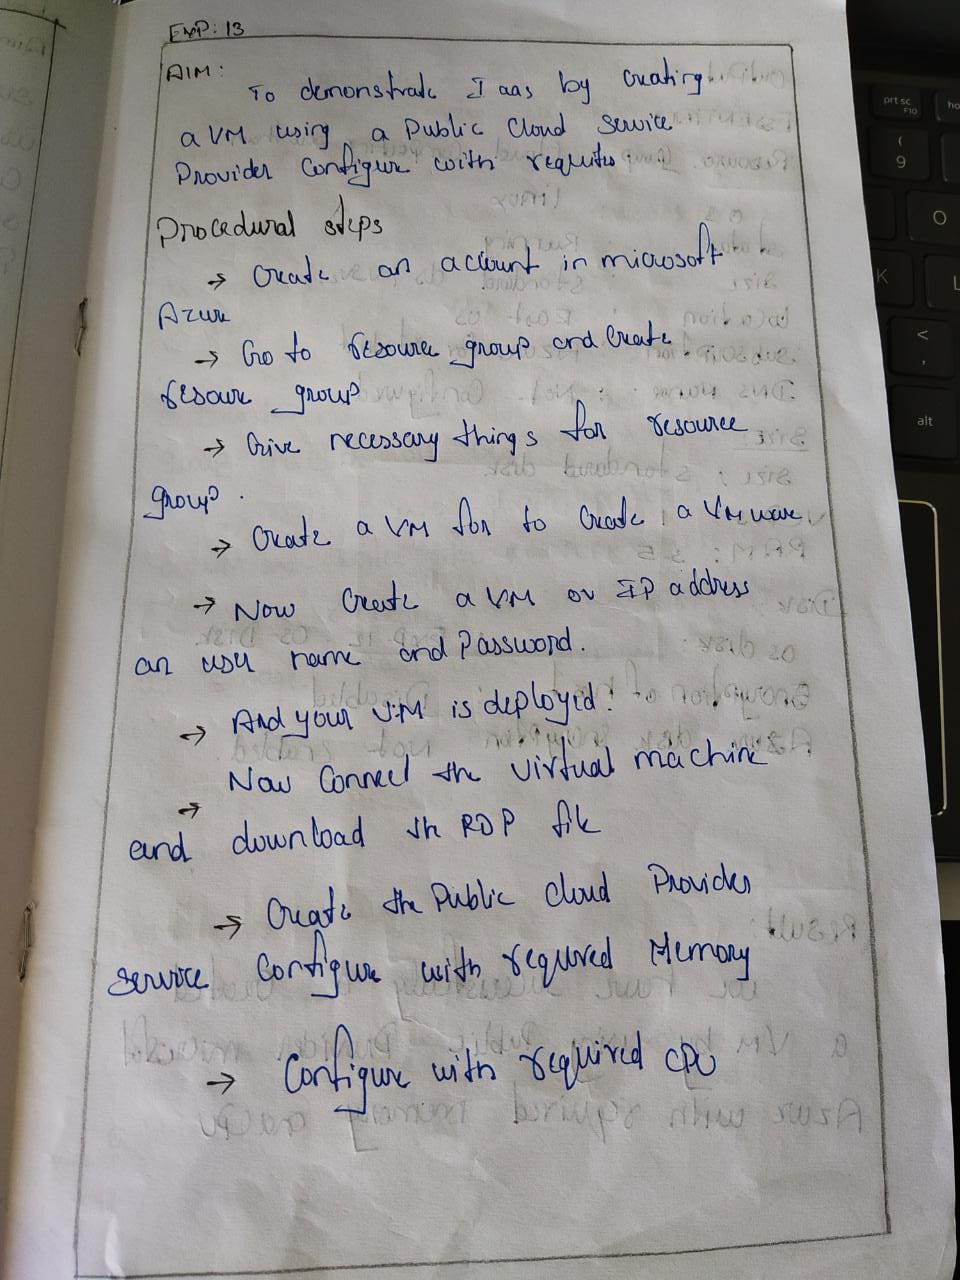 Exp: 13
AIM:
To demonstrate Iaas by creating
a VM using a Public Cloud Service
Provider Configure with requites
Procedural steps
→ Create an account in microsoft
Azure
→ Go to resource group and Create
resource group
→ Give necessary things for resource
group.
→ Create a VM for to Create a VM ware
→ Now Create a VM or IP address
an user name and Password.
→ And your VM is deployed.
→ Now Connect the virtual machine
and download the RDP file
→ Create the Public Cloud Provider
service Configure with required Memory
→ Configure with required CPU
prt sc
F10
(
9
O
K
L
<
,
alt